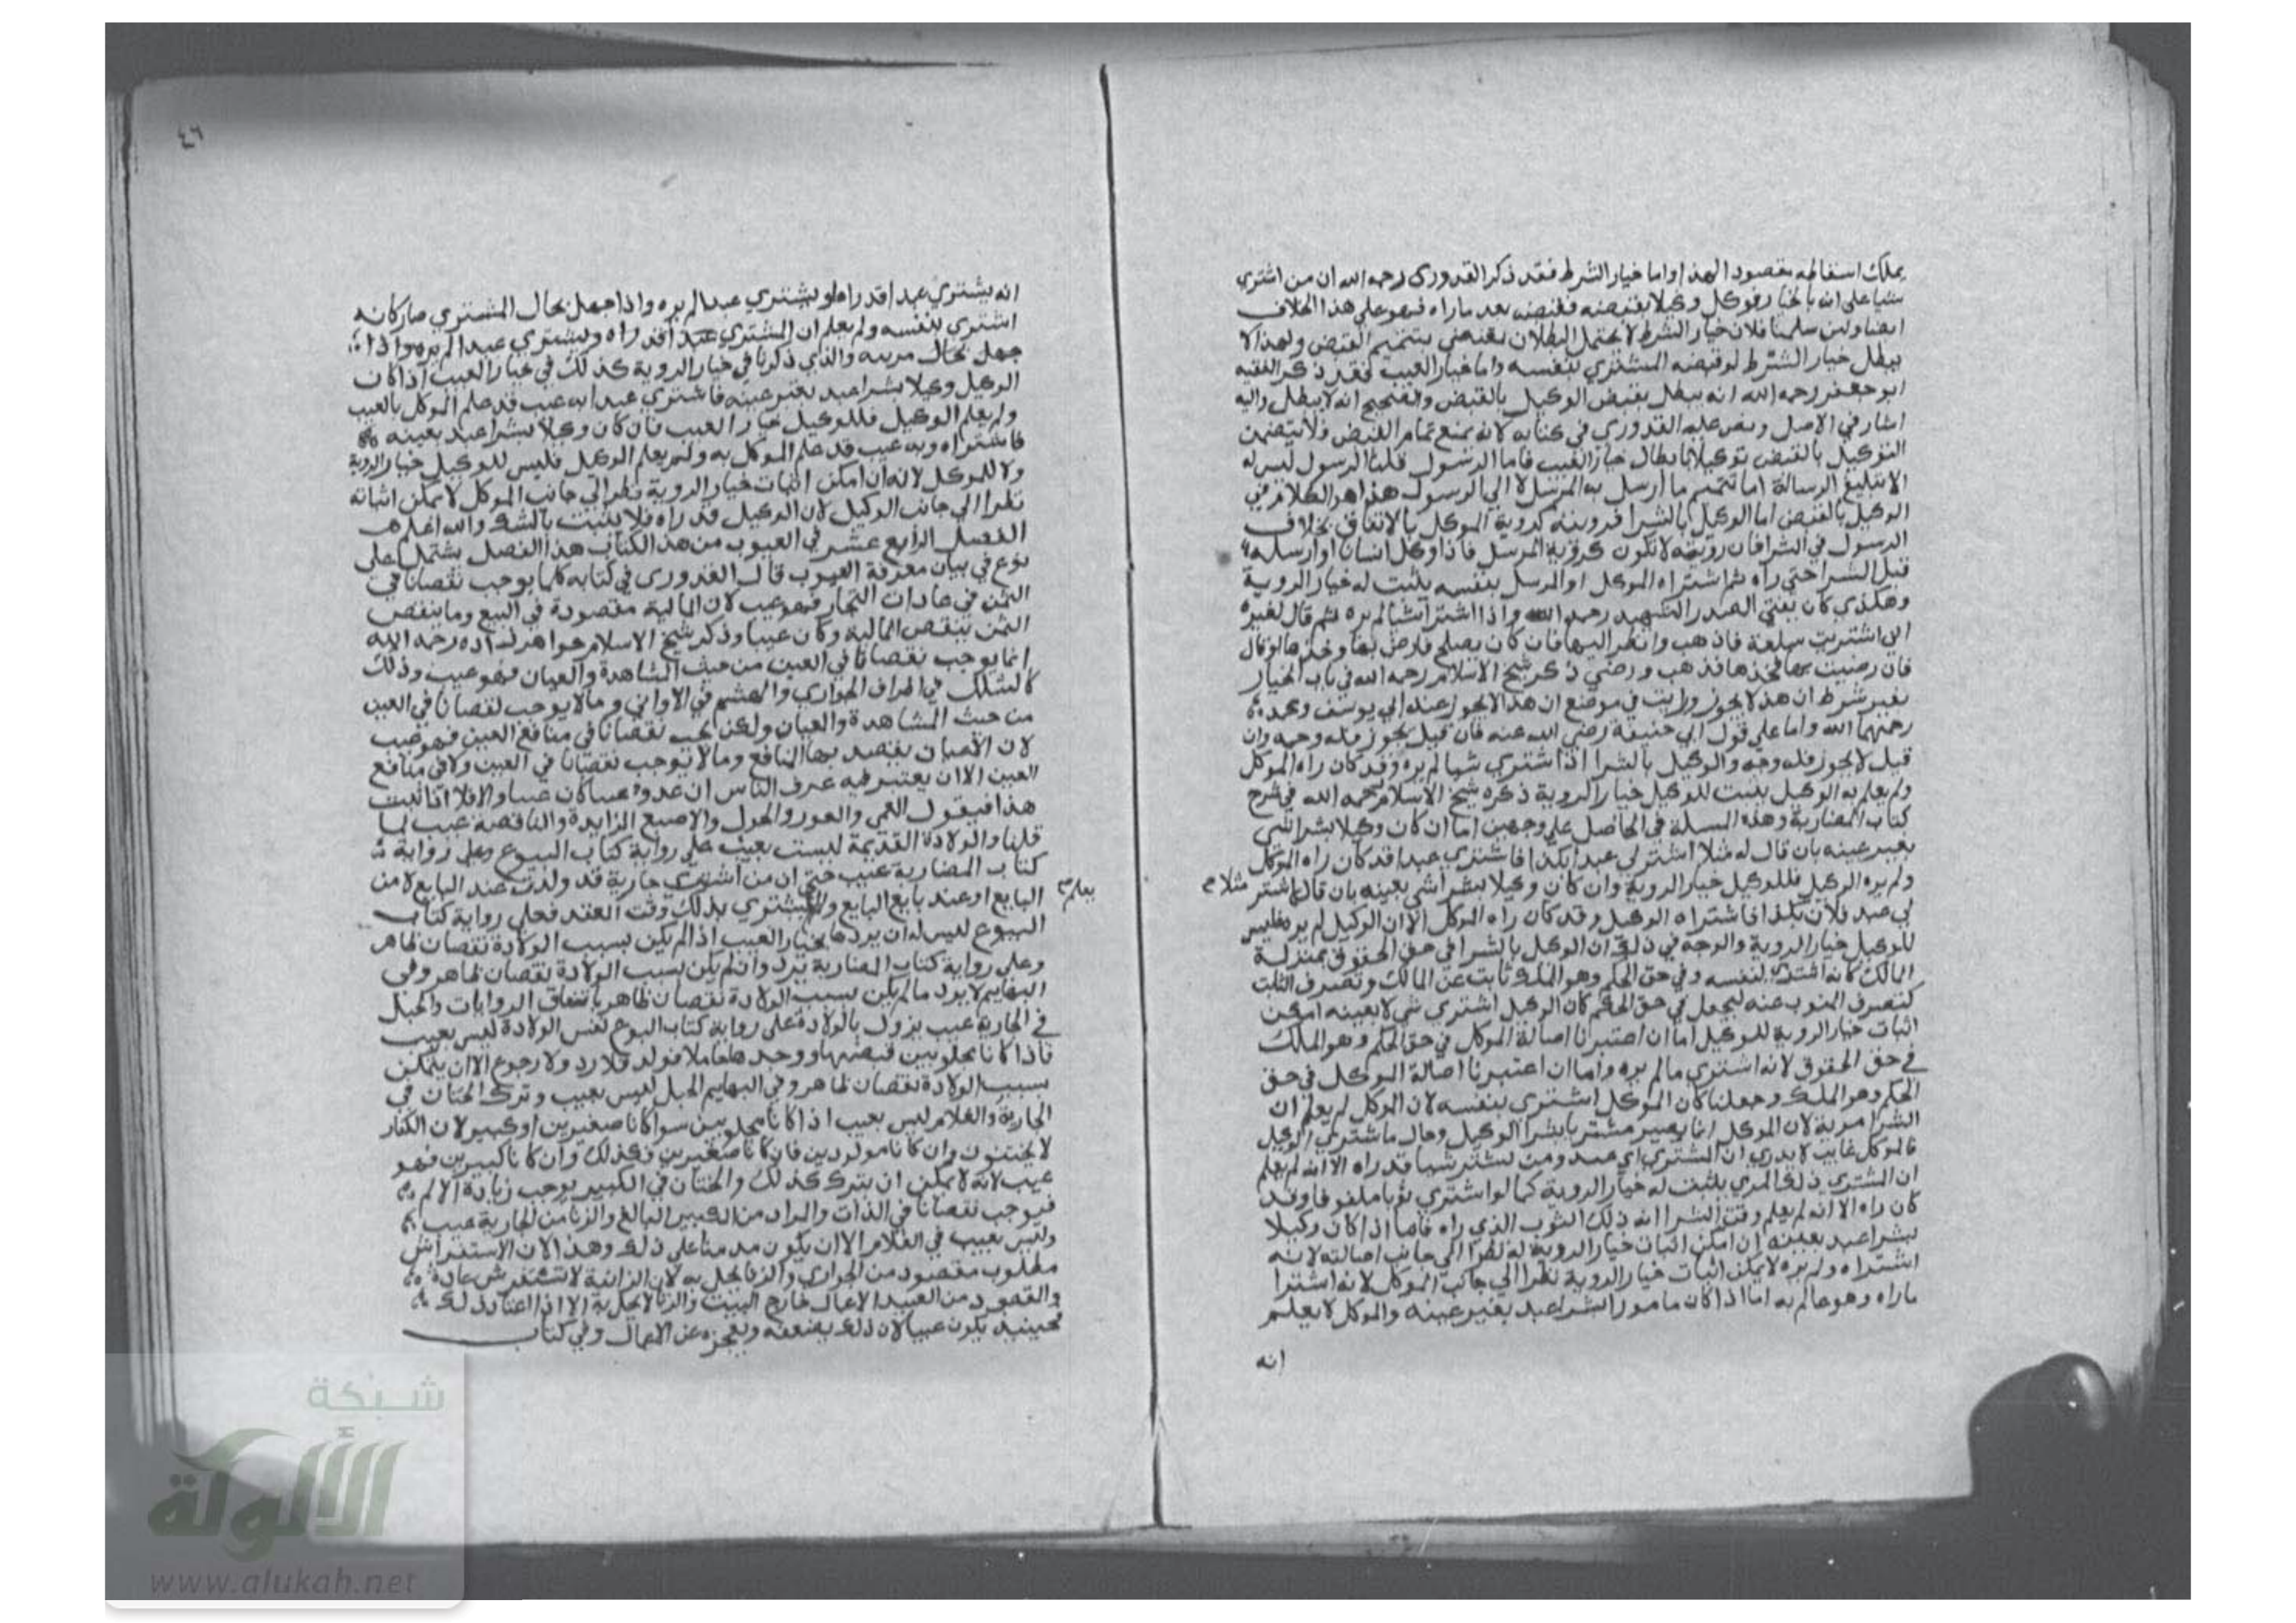 يملك اسقاطه مقصودا لهذا واما خيار الشرط فقد ذكر القدوري رحمه الله ان من اشترى
شيا على انه بالخيار فوكل وكيلا بقبضه فقبضه بعد ماراه فهو على هذا الخلاف
ايضا ولين سلمنا فلان خيار الشرط لا يحتمل البطلان بتتميم القبض ولهذا لا
يبطل خيار الشرط لو قبضه المشتري بنفسه واما خيار العيب فقد ذكر الفقيه
ابو جعفر رحمه الله انه يبطل بقبض الوكيل بالقبض والصحيح انه لا يبطل واليه
اشار في الاصل ونص عليه القدوري في كتابه لانه يمنع تمام القبض فلا يتضمن
التوكيل بالقبض توكيلا بابطال خيار العيب فاما الرسول قلنا الرسول ليس له
الا تبليغ الرسالة اما تتميم ما ارسل به المرسل لا الي الرسول هذا هو الكلام في
الوكيل بالقبض اما الوكيل بالشرا فرويته كروية الموكل بالاتفاق بخلاف
الرسول في الشرا فان رويته لا تكون كروية المرسل فاذا وكل انسانا او ارسله
قبل الشرا حتى راه ثم اشتراه الموكل او المرسل بنفسه يثبت له خيار الروية
وهكذى كان يفتي الصدر الشهيد رحمه الله واذا اشترا شيا لم يره ثم قال لغيره
اني اشتريت سلعة فاذهب وانظر اليها فان كان يصلح فارض بها وخذها او قال
فان رضيت بها فخذها فذهب ورضي ذكر شيخ الاسلام رحمه الله في باب الخيار
بغير شرط ان هذا لا يجوز ورايت في موضع ان هذا لا يجوز عند ابي يوسف ومحمد
رحمهما الله واما على قول ابي حنيفة رضي الله عنه فان قيل يجوز فله وجه وان
قيل لا يجوز فله وجه والوكيل بالشرا اذا اشتري شيا لم يره وقد كان راه الموكل
ولم يعلم به الوكيل يثبت للوكيل خيار الروية ذكره شيخ الاسلام رحمه الله في شرح
كتاب المضاربة وهذه المسلة في الحاصل علي وجهين اما ان كان وكيلا بشرا شي
بغير عينه بان قال له مثلا اشتر لي عبدا بكذا فاشتري عبدا قد كان راه الموكل
ولم يره الوكيل فللوكيل خيار الروية وان كان وكيلا بشرا شي بعينه بان قال اشتر مثلا صح
لي عبد فلان بكذا فاشتراه الوكيل وقد كان راه الموكل الا ان الوكيل لم يره فليس
للوكيل خيار الروية والوجه في ذلك ان الوكيل بالشرا في حق الحقوق بمنزلة
المالك كانه اشتري لنفسه وفي حق الحكم وهو الملك نايب عن المالك وتصرف النايب
كتصرف المنوب عنه فيجعل في حق الحكم كان الوكيل اشتري شي لا بعينه امكن
اثبات خيار الروية للوكيل اما ان اعتبرنا اصالة الموكل في حق الحكم وهو الملك
في حق الحقوق لانه اشتري مالم يره واما ان اعتبرنا اصالة الموكل في حق
الحكم وهو الملك وجعلنا كان الموكل اشتري بنفسه لان الموكل لم يعلم ان
الشرا مرية لان الموكل انما يصير مشتريا بشرا الوكيل وحال ما شتري الوكيل
فالموكل غايب لا يدري ان المشتري اي عبد ومن يشتر شيا قد راه الا انه لم يعلم
ان المشتري ذلك المري يثبت له خيار الروية كما لو اشتري ثوبا ملفوفا وقد
كان راه الا انه لم يعلم وقت الشرا انه ذلك الثوب الذي راه فاما اذا كان وكيلا
بشرا عبد بعينه ان امكن اثبات خيار الروية له نظرا الي جانب اصالته لانه
اشتراه ولم يره لا يمكن اثبات خيار الروية نظرا الي جانب الموكل لانه اشترا
ماراه وهو عالم به اما اذا كان مامورا بشرا عبد بغير عينه والموكل لا يعلم
انه
٤٦
انه يشتري عبدا قد راه او يشتري عبدا لم يره واذا جهل بحال المشتري صار كانه
اشتري بنفسه ولم يعلم ان المشتري عبدا قد راه ويشتري عبدا لم يره واذا
جهل بحال مريه والذي ذكرنا في خيار الروية كذلك في خيار العيب اذا كان
الوكيل وكيلا بشرا عبد بغير عينه فاشتري عبدا به عيب قد علم الموكل بالعيب
ولم يعلم الوكيل فللوكيل خيار العيب فان كان وكيلا بشرا عبد بعينه
فاشتراه وبه عيب قد علم الموكل به ولم يعلم الوكيل فليس للوكيل خيار الروية
ولا للموكل لانه ان امكن اثبات خيار الروية نظرا الي جانب الموكل لا يمكن اثباته
نظرا الي جانب الوكيل لان الوكيل قد راه فلا يثبت بالشك والله اعلم
الفصل الرابع عشر في العيوب من هذا الكتاب هذا الفصل يشتمل على
نوع في بيان معرفة العيوب قال القدوري في كتابه كلما يوجب نقصانا في
الثمن في عادات التجار فهو عيب لان المالية مقصودة في البيع وما ينقص
الثمن ينقص المالية وكان عيبا وذكر شيخ الاسلام خواهر زاده رحمه الله
انما يوجب نقصانا في العين من حيث المشاهدة والعيان فهو عيب وذلك
كالشلل في اطراف الجواري والهشم في الاواني ومالا يوجب نقصانا في العين
من حيث المشاهدة والعيان ولكن يوجب نقصانا في منافع العين فهو عيب
لان الاعيان يقصد بها المنافع ومالا يوجب نقصانا في العين ولا في منافع
العين الا ان يعتبر فيه عرف الناس ان عدوه عيبا كان عيبا والا فلا اذا ثبت
هذا فيقول العمي والعور والحول والاصبع الزايدة والناقصة عيب لما
قلنا والولادة القديمة ليست بعيب علي رواية كتاب البيوع وعلي رواية
كتاب المضاربة عيب حتى ان من اشتري جارية قد ولدت عند البايع لا من
البايع او عند بايع البايع ولم يعلم المشتري بذلك وقت العقد فعلي رواية كتاب
البيوع ليس له ان يردها بخيار العيب اذا لم يكن بسبب الولادة نقصان ظاهر
وعلي رواية كتاب المضاربة يرد وان لم يكن بسبب الولادة نقصان ظاهر وفي
البهايم لا يرد مالم يكن بسبب الولادة نقصان ظاهر باتفاق الروايات والحبل
في الجارية عيب يزول بالولادة على رواية كتاب البيوع نفس الولادة ليس بعيب
فاذا كانا مجلوبين فقبضها ووجدها حاملا فولد فلا رد ولا رجوع الا ان يتمكن
بسبب الولادة نقصان ظاهر وفي البهايم الحبل ليس بعيب وترك الختان في
الجارية والغلام ليس بعيب اذا كانا مجلوبين سوا كانا صغيرين او كبيرين لان الكفار
لا يختنون وان كانا مولودين فان كانا صغيرين فكذلك وان كانا كبيرين فهو
عيب لانه لا يمكن ان يترك كذلك والختان في الكبير يوجب زيادة الالم
فيوجب نقصانا في الذات والمراد من الكبير البالغ والزنا من الجارية عيب
وليس بعيب في الغلام الا ان يكون مدمنا على ذلك وهذا لان الاستفراش
مطلوب مقصود من الجواري والزنا يخل به لان الزانية لا تستفرش عادة
والمقصود من العبيد الاعمال خارج البيت والزنا لا يخل به الا اذا اعتاد ذلك
فحينيذ يكون عيبا لان ذلك يضعفه ويعجزه عن الاعمال وفي كتاب
شبكة
الألوكة
www.alukah.net